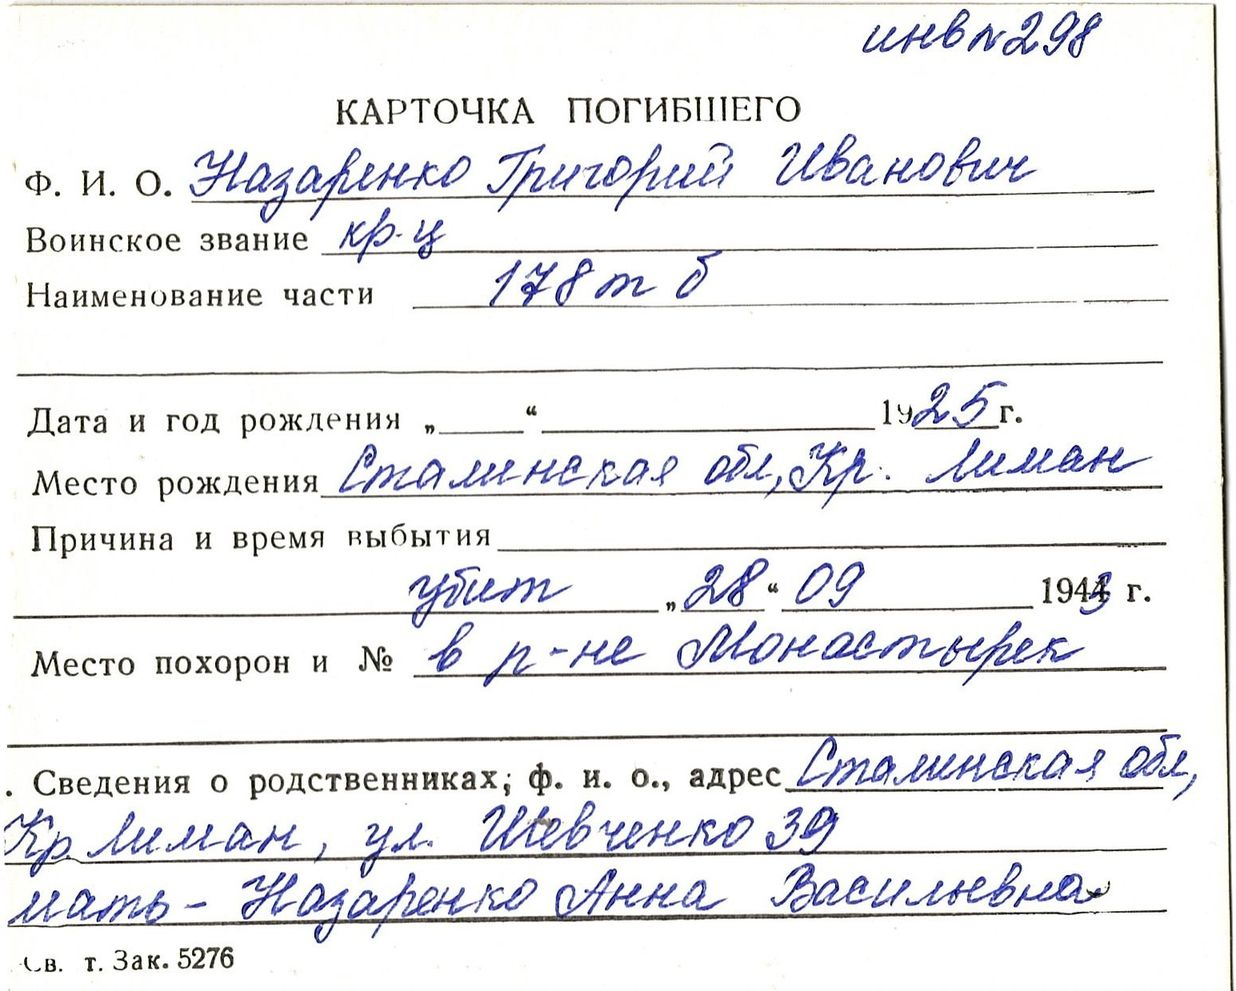 инв №298
КАРТОЧКА ПОГИБШЕГО
Ф. И. О. Назаренко Григорий Иванович
Воинское звание кр-ц
Наименование части 178 т б
Дата и год рождения „ “ 1925 г.
Место рождения Сталинская обл, Кр. Лиман
Причина и время выбытия
убит „28“ 09 1943 г.
Место похорон и № в р-не Монастырек
. Сведения о родственниках; ф. и. о., адрес Сталинская обл,
Кр. Лиман, ул. Шевченко 39
мать - Назаренко Анна Васильевна
Св. т. Зак. 5276